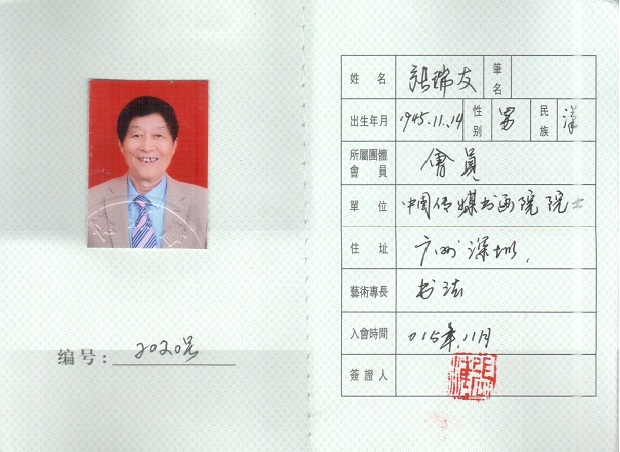 编号: 2020号
姓名 张瑞友 筆名
出生年月 1945.11.14 性别 男 民族 汉
所屬團體會員 會員
單位 中国传媒书画院院士
住址 广州深圳.
藝術專長 书法
入會時間 015年.11月
簽證人